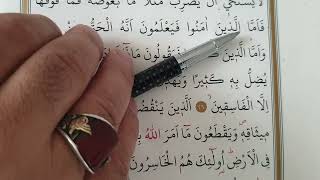 لَا يَسْتَحْيٖٓ اَنْ يَضْرِبَ مَثَلًا مَا بَعُوضَةً فَمَا فَوْقَهَا
فَاَمَّا الَّذٖينَ اٰمَنُوا فَيَعْلَمُونَ اَنَّهُ الْحَقُّ
وَاَمَّا الَّذٖينَ يَقُولُونَ مَاذَٓا
يُضِلُّ بِهٖ كَثٖيرًا وَيَهْدٖي
اِلَّا الْفَاسِقٖينَ ﴿٢٦﴾ اَلَّذٖينَ يَنْقُضُونَ
مٖيثَاقِهٖ وَيَقْطَعُونَ مَٓا اَمَرَ اللّٰهُ
فِي الْاَرْضِ اُو۬لٰٓئِكَ هُمُ الْخَاسِرُونَ